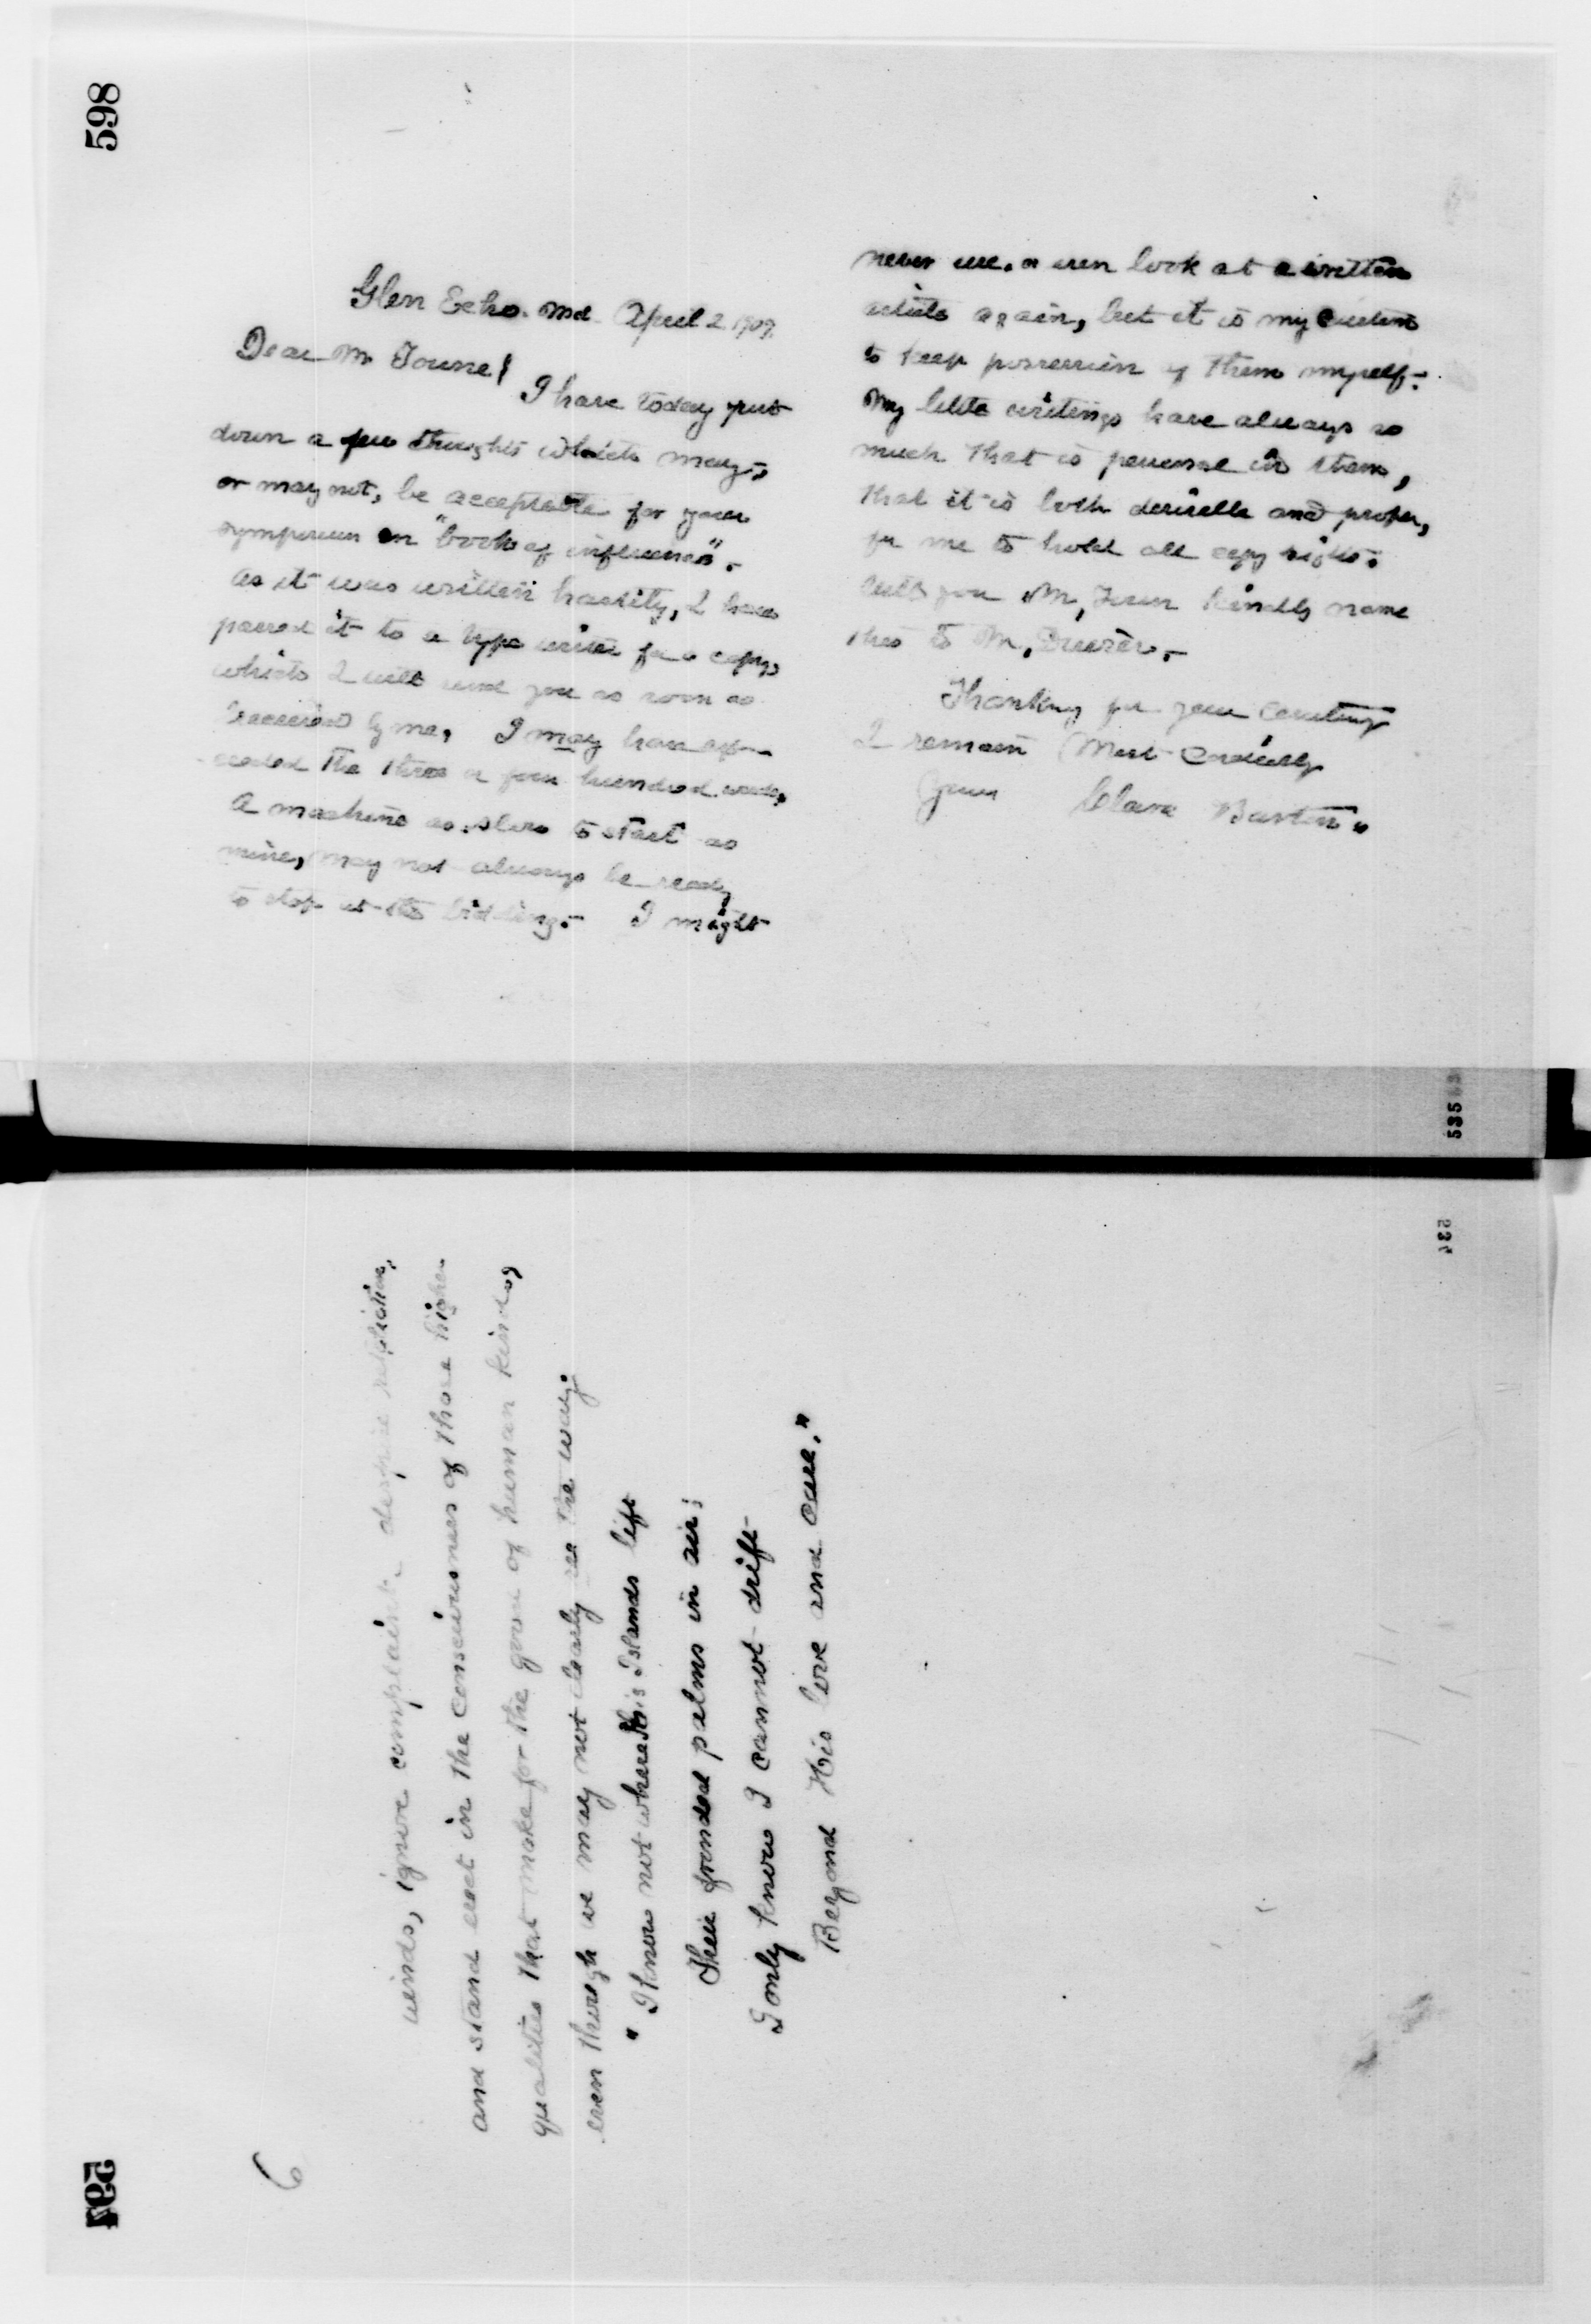 598
Glen Echo. Md. April 2 1909.
Dear Mr Towne!
I have today put
down a few thoughts which may,
or may not, be acceptable for your
symposium on "books of influence".
As it was written hastily, I have
passed it to a type writer for a copy,
which I will send you as soon as
received by me. I may have ex-
ceeded the three or four hundred words,
A machine as slow to start as
mine, may not always be ready
to stop at the bidding. I might
never use, or even look at a written
article again, but it is my custom
to keep possession of them myself.
My little writings have always so
much that is personal in them,
that it is both desirable and proper,
for me to hold all copy rights.
Will you Mr, kindly name
this to Mr,
Thanking for your courtesy
I remain Most Cordially
Yours Clara Barton.
535
534
winds, ignore complaint, despise
and stand erect in the consciousness of those higher
qualities that make for the good of human kind,
even though we may not clearly see the way.
"I know not where His Islands lift
Their fronded palms in air;
I only know I cannot drift
Beyond His love and care."
6
594